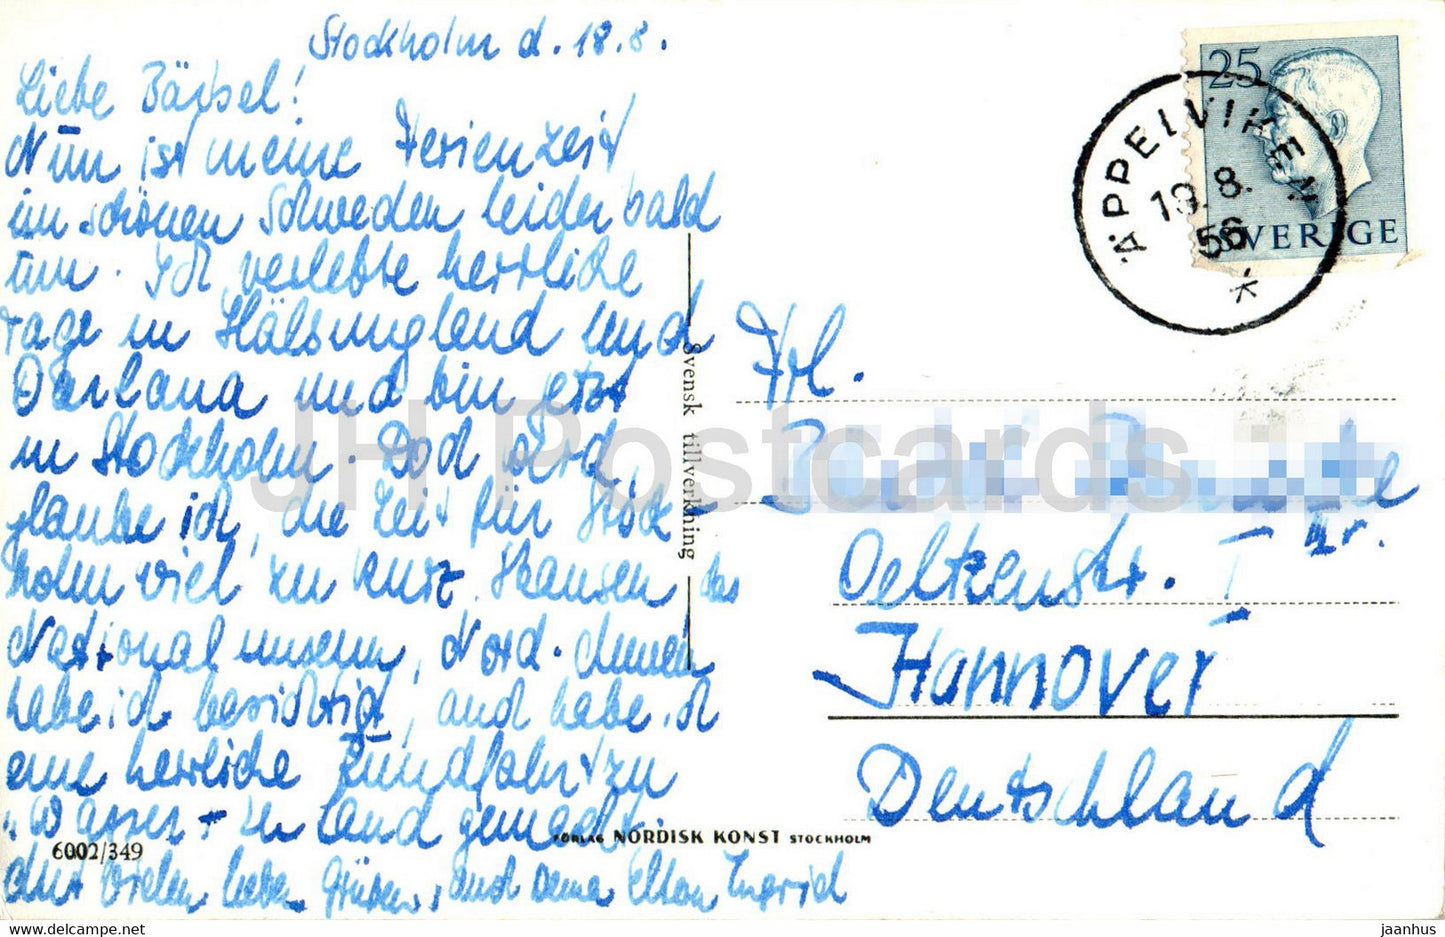 Stockholm d. 18.8.
Liebe Bärbel!
Nūn ist meine Ferienzeit
im schönen Schweden leider bald
ūm. Ich verlebte herrliche
Tage in Hälsingland und
Darlana und bin jetzt
in Stockholm. Doch wird,
glaube ich, die Zeit für Stock-
holm viel zu kurz. Skansen, das
Nationalmuseum, Nord.
habe ich besichtigt, und habe ich
eine herrliche Rūndfahrt zu
"Wasser + zu Land gemacht.
6002/349
vielen lieben Grüßen, auch Deine Eltern Ingrid
Svensk tillverkning
FÖRLAG NORDISK KONST STOCKHOLM
25
SVERIGE
ÄPPELVIKEN
19.8.
56
*
Frl.
Oeltzenstr. I
Hannover
Deutschland
JH Postcards
hippostcard.com
jaanhus